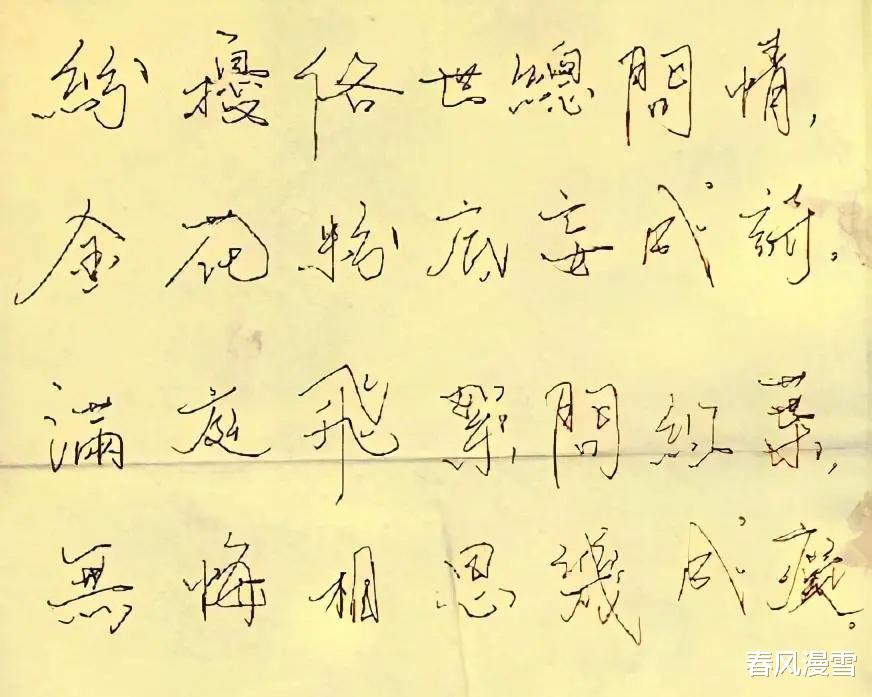 紛擾俗世總問情，
金花粉底妄成詩。
滿庭飛絮問紅葉，
無悔相思幾成癡。
春风漫雪